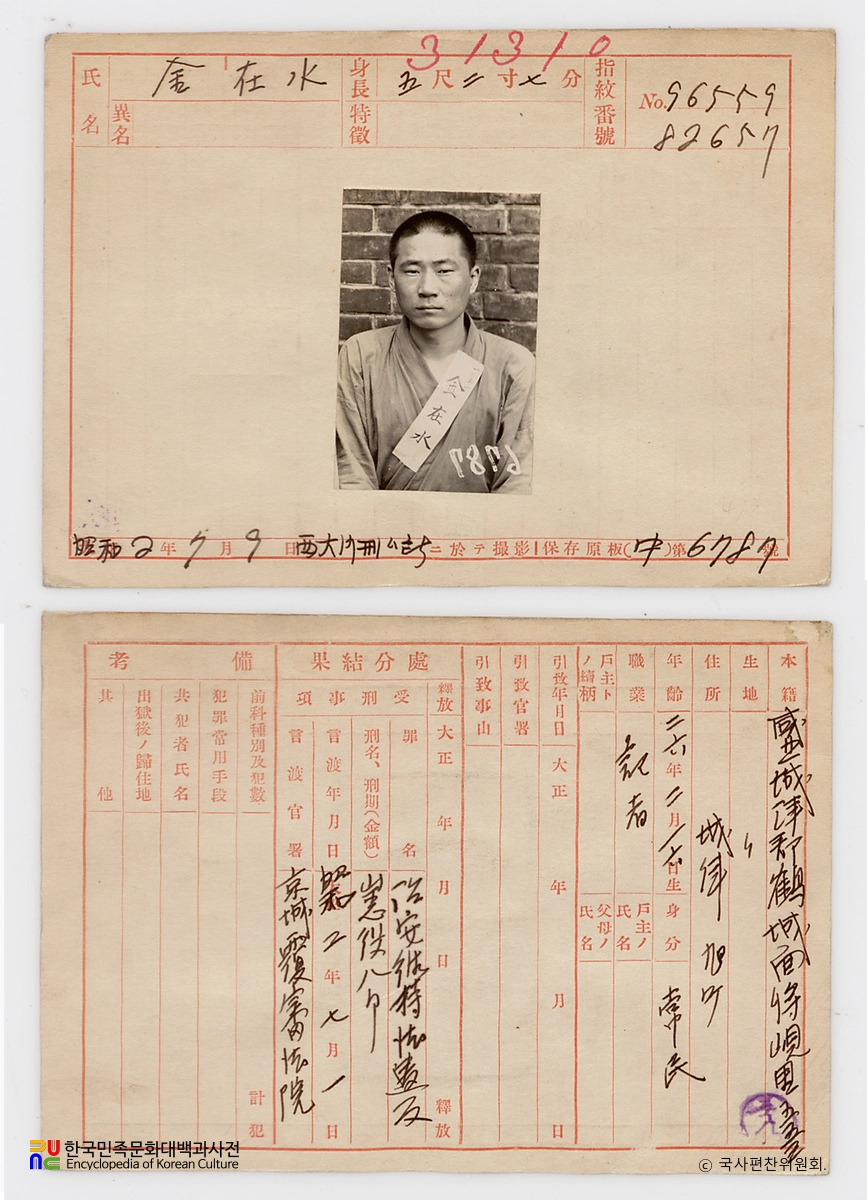 31310
氏名 金在水
異名
身長 五尺二寸七分
特徴
指紋番號 No.96559
82657
金在水
7879
昭和2年7月9日西大門刑ム所ニ於テ撮影
保存原板(中)第6787號
本籍 咸北城津郡鶴城面将峴里
生地 〃
住所 城津旭町
年齢 二六年二月一六日生
身分 常民
職業 記者
戸主ノ氏名
戸主トノ續柄
父母ノ氏名
引致年月日 大正 年 月 日
引致官署
引致事由
處分結果
釋放 大正 年 月 日 釋放
受刑事項
罪名 治安維持法違反
刑名、刑期(金額) 懲役八月
言渡年月日 昭和2年七月一日
言渡官署 京城覆審法院
備考
前科種別及犯數 計 犯
犯罪常用手段
共犯者氏名
出獄後ノ歸住地
其他
한국민족문화대백과사전
Encyclopedia of Korean Culture
© 국사편찬위원회.